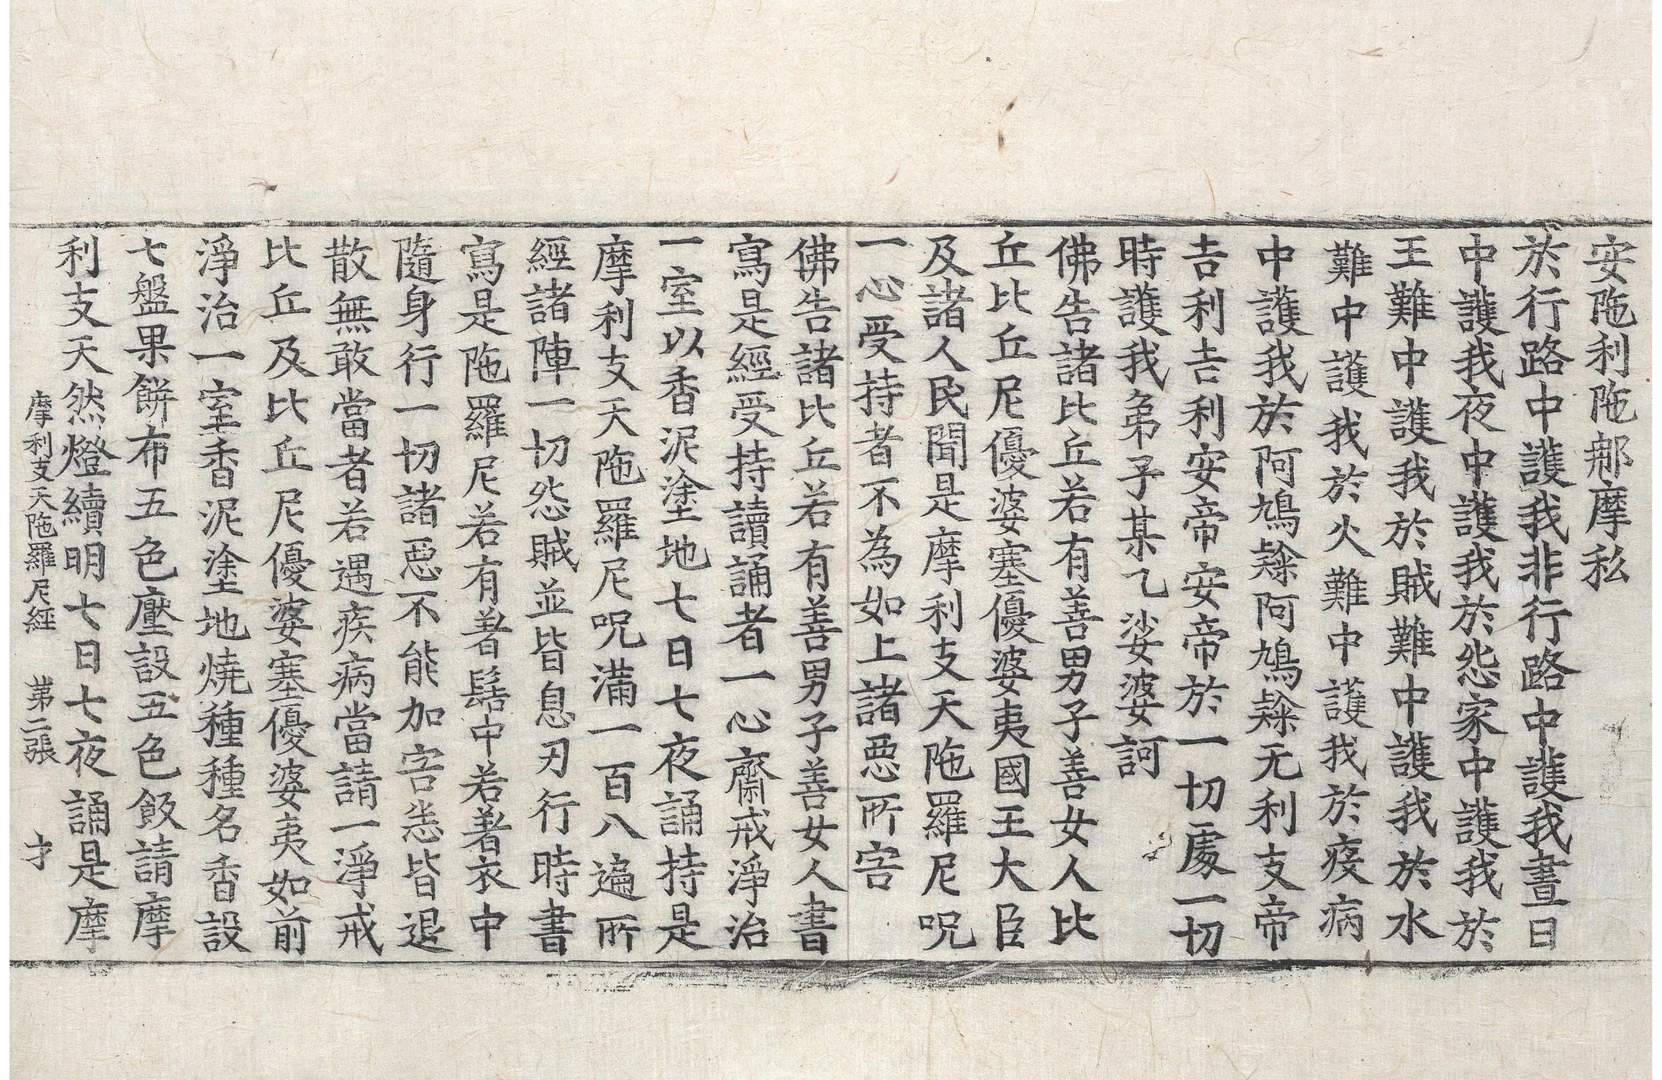 安陁利陁䣀摩私
於行路中護我非行路中護我晝日
中護我夜中護我於怨家中護我於
王難中護我於賊難中護我於水
難中護我於火難中護我於疫病
中護我於阿鳩隸阿鳩隸无利支帝
吉利吉利安帝安帝於一切處一切
時護我弟子某乙娑婆訶
佛告諸比丘若有善男子善女人比
丘比丘尼優婆塞優婆夷國王大臣
及諸人民聞是摩利支天陁羅尼呪
一心受持者不為如上諸惡所害
佛告諸比丘若有善男子善女人書
寫是經受持讀誦者一心齋戒淨治
一室以香泥塗地七日七夜誦持是
摩利支天陁羅尼呪滿一百八遍所
經諸陣一切怨賊並皆息刃行時書
寫是陁羅尼若有著髻中若著衣中
隨身行一切諸惡不能加害恙皆退
散無敢當者若遇疾病當請一淨戒
比丘及比丘尼優婆塞優婆夷如前
淨治一室香泥塗地燒種種名香設
七盤果餅布五色壓設五色飯請摩
利支天然燈續明七日七夜誦是摩
摩利支天陁羅尼經 第二張 才